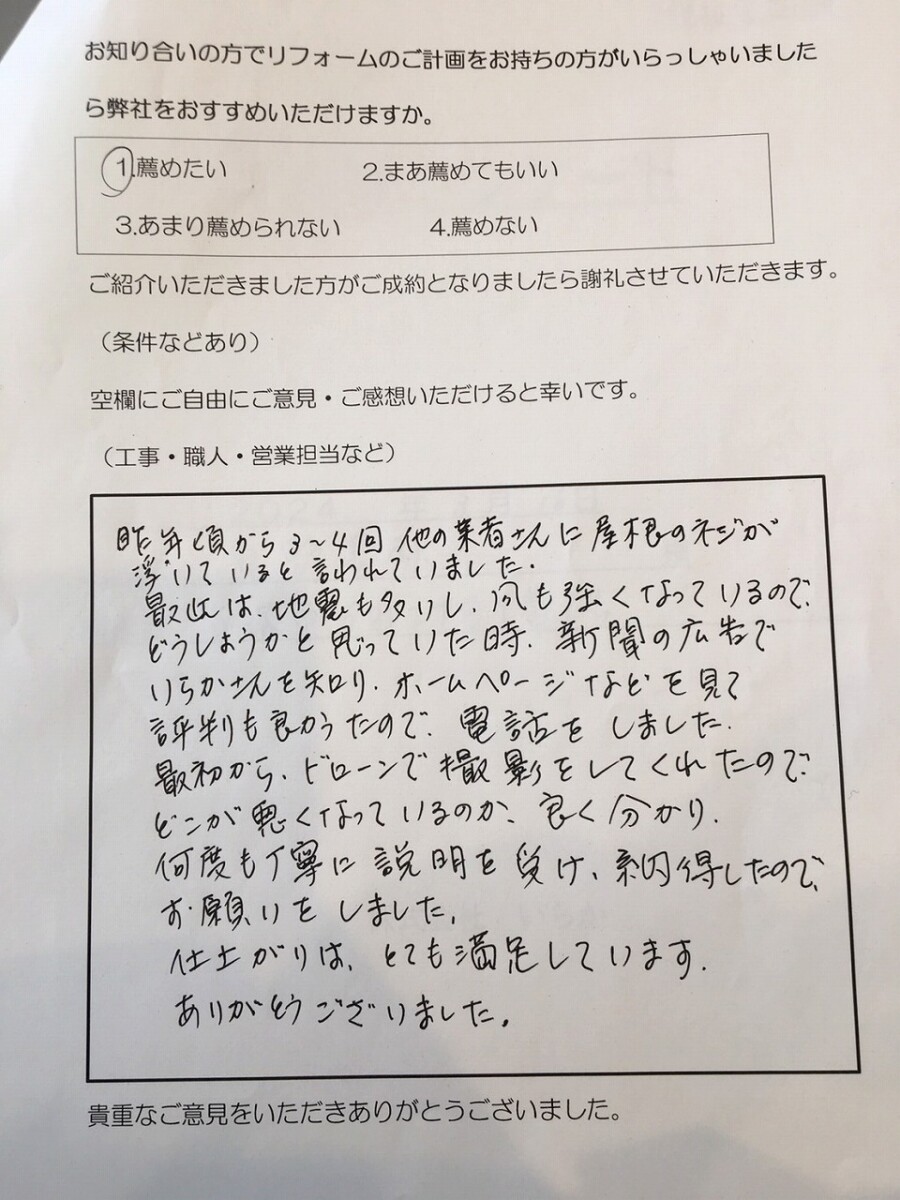 お知り合いの方でリフォームのご計画をお持ちの方がいらっしゃいました
ら弊社をおすすめいただけますか。
1.薦めたい 2.まあ薦めてもいい
3.あまり薦められない 4.薦めない
ご紹介いただきました方がご成約となりましたら謝礼させていただきます。
（条件などあり）
空欄にご自由にご意見・ご感想いただけると幸いです。
（工事・職人・営業担当など）
昨年頃から3〜4回 他の業者さんに屋根のネジが
浮いていると言われていました.
最近は、地震も多いし、風も強くなっているので、
どうしようかと思っていた時、新聞の広告で
いらかさんを知り、ホームページなどを見て
評判も良かったので、電話をしました.
最初から、ドローンで撮影をしてくれたので、
どこが悪くなっているのか、良く分かり、
何度も丁寧に説明を受け、納得したので、
お願いをしました.
仕上がりは、とても満足しています.
ありがとうございました.
貴重なご意見をいただきありがとうございました。